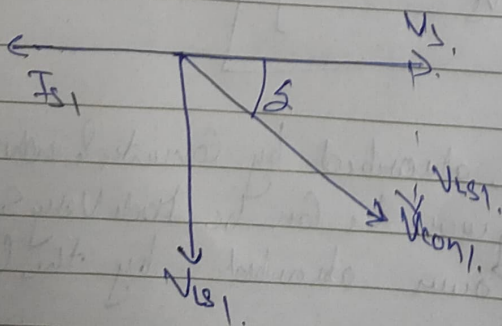 Vs.
Is1
δ
VLs1.
Vcon1.
VLs1.